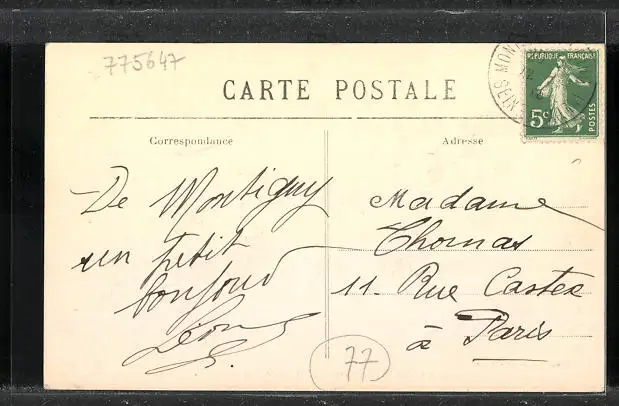 775647
CARTE POSTALE
Correspondance
Adresse
RÉPUBLIQUE FRANÇAISE
5c
POSTES
De Montigny
un petit
bonjour
Léon
Madame
Thomas
11. Rue Castex
à Paris
77